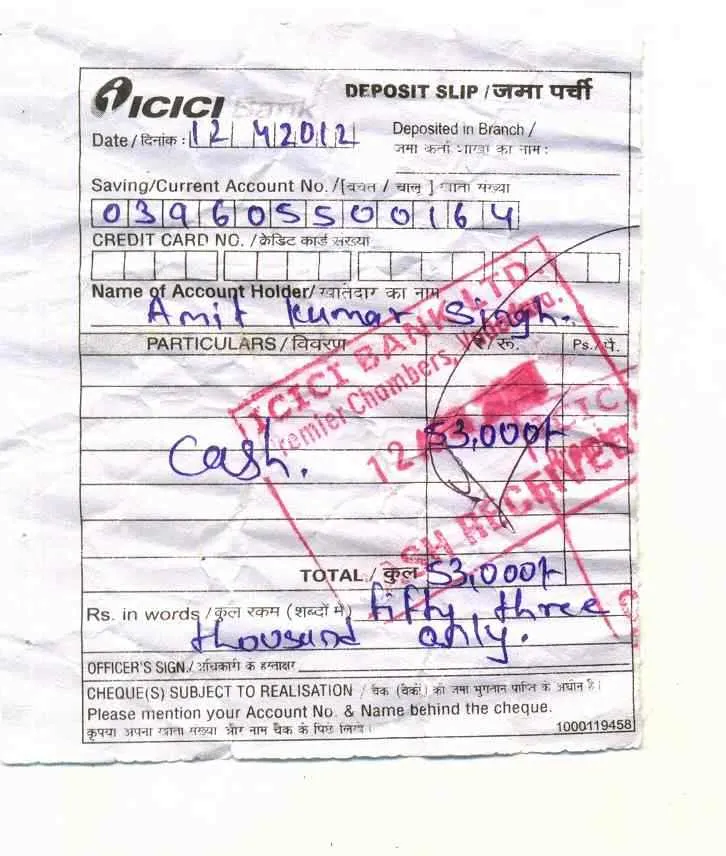 ICICI Bank
DEPOSIT SLIP / जमा पर्ची
Date / दिनांक : 12 4 2012
Deposited in Branch /
जमा कर्ता शाखा का नाम :
Saving/Current Account No. /[बचत / चालू ] खाता संख्या
039605500164
CREDIT CARD NO. / क्रेडिट कार्ड संख्या
Name of Account Holder/ खातेदार का नाम
Amit Kumar Singh.
PARTICULARS / विवरण ₹/रू. Ps./पै.
ICICI BANK LTD
Premier Chambers,
12
Cash. 53,000/-
CASH RECEIVED
TOTAL / कुल 53,000/-
Rs. in words / कुल रकम (शब्दों में) fifty three
thousand only.
OFFICER'S SIGN./ अधिकारी के हस्ताक्षर
CHEQUE(S) SUBJECT TO REALISATION / चेक (चेकों) की जमा भुगतान प्राप्ति के अधीन है।
Please mention your Account No. & Name behind the cheque.
कृपया अपना खाता संख्या और नाम चैक के पिछे लिखें।
1000119458